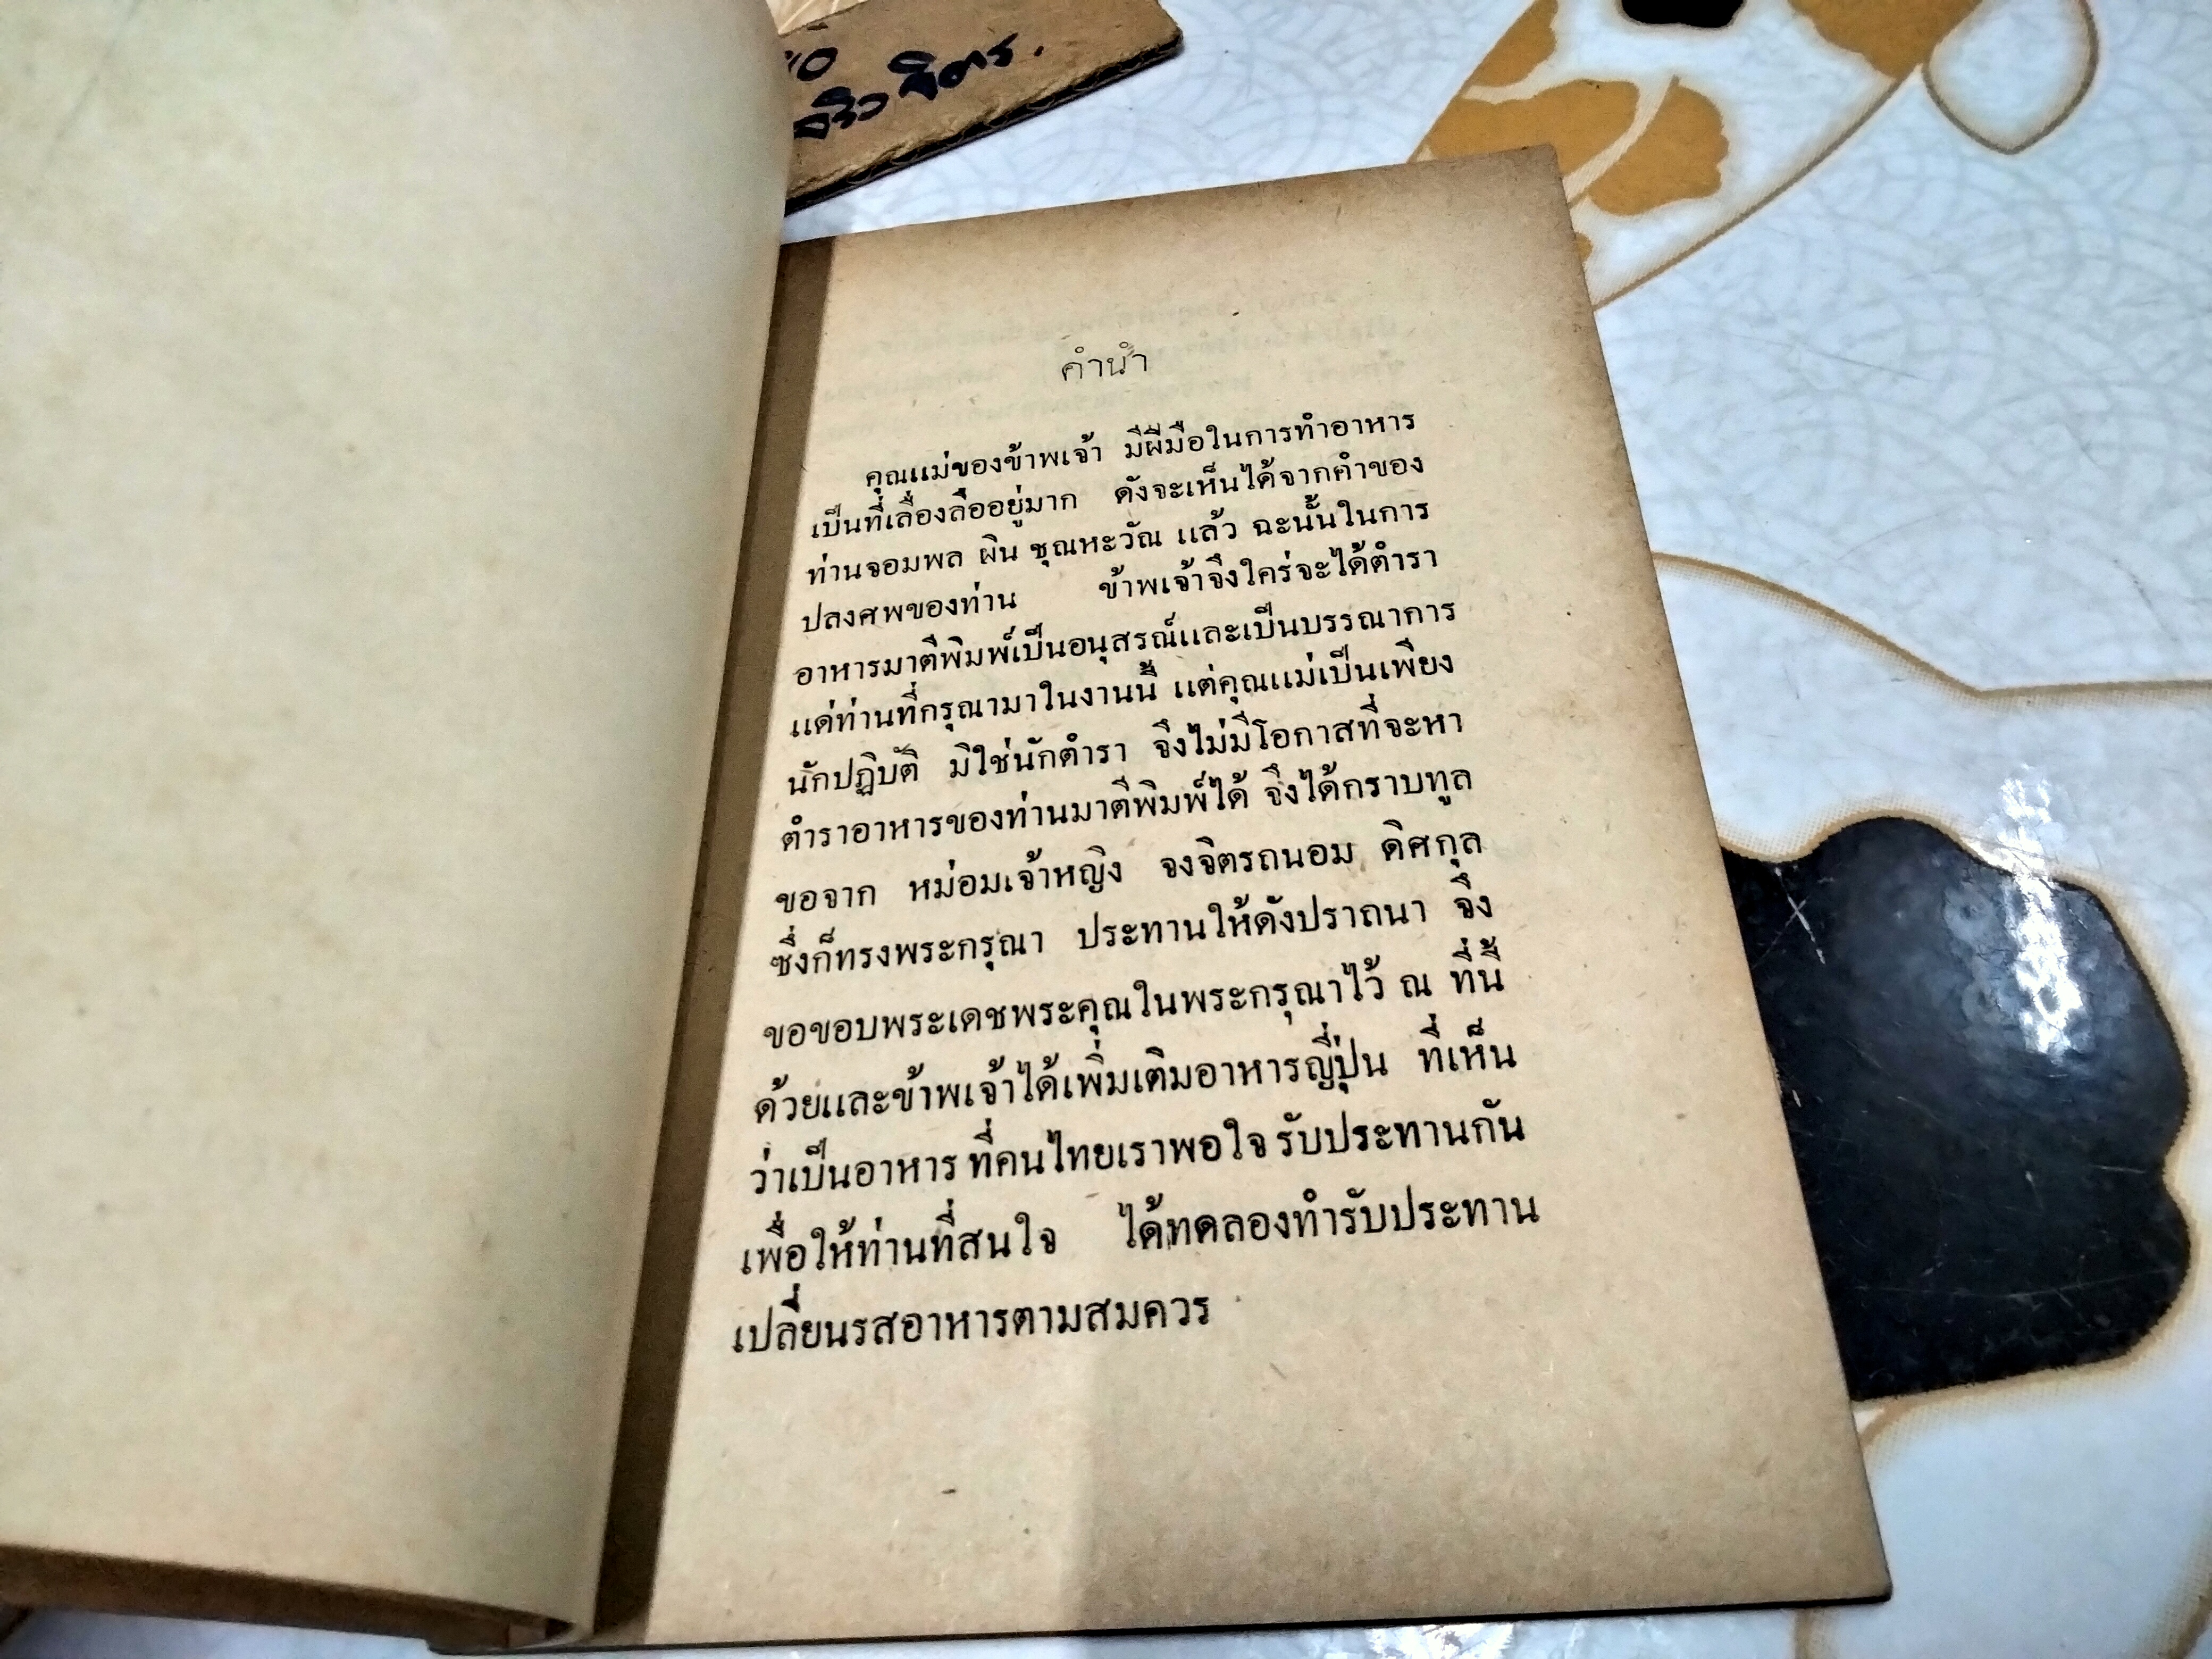 จิตร.
คำนำ
คุณแม่ของข้าพเจ้า มีฝีมือในการทำอาหาร
เป็นที่เลื่องลืออยู่มาก ดังจะเห็นได้จากคำของ
ท่านจอมพล ผิน ชุณหะวัณ แล้ว ฉะนั้นในการ
ปลงศพของท่าน ข้าพเจ้าจึงใคร่จะได้ตำรา
อาหารมาตีพิมพ์เป็นอนุสรณ์และเป็นบรรณาการ
แด่ท่านที่กรุณามาในงานนี้ แต่คุณแม่เป็นเพียง
นักปฏิบัติ มิใช่นักตำรา จึงไม่มีโอกาสที่จะหา
ตำราอาหารของท่านมาตีพิมพ์ได้ จึงได้กราบทูล
ขอจาก หม่อมเจ้าหญิง จงจิตรถนอม ดิศกุล
ซึ่งก็ทรงพระกรุณา ประทานให้ดังปราถนา จึง
ขอขอบพระเดชพระคุณในพระกรุณาไว้ ณ ที่นี้
ด้วยและข้าพเจ้าได้เพิ่มเติมอาหารญี่ปุ่น ที่เห็น
ว่าเป็นอาหาร ที่คนไทยเราพอใจ รับประทานกัน
เพื่อให้ท่านที่สนใจ ได้ทดลองทำรับประทาน
เปลี่ยนรสอาหารตามสมควร